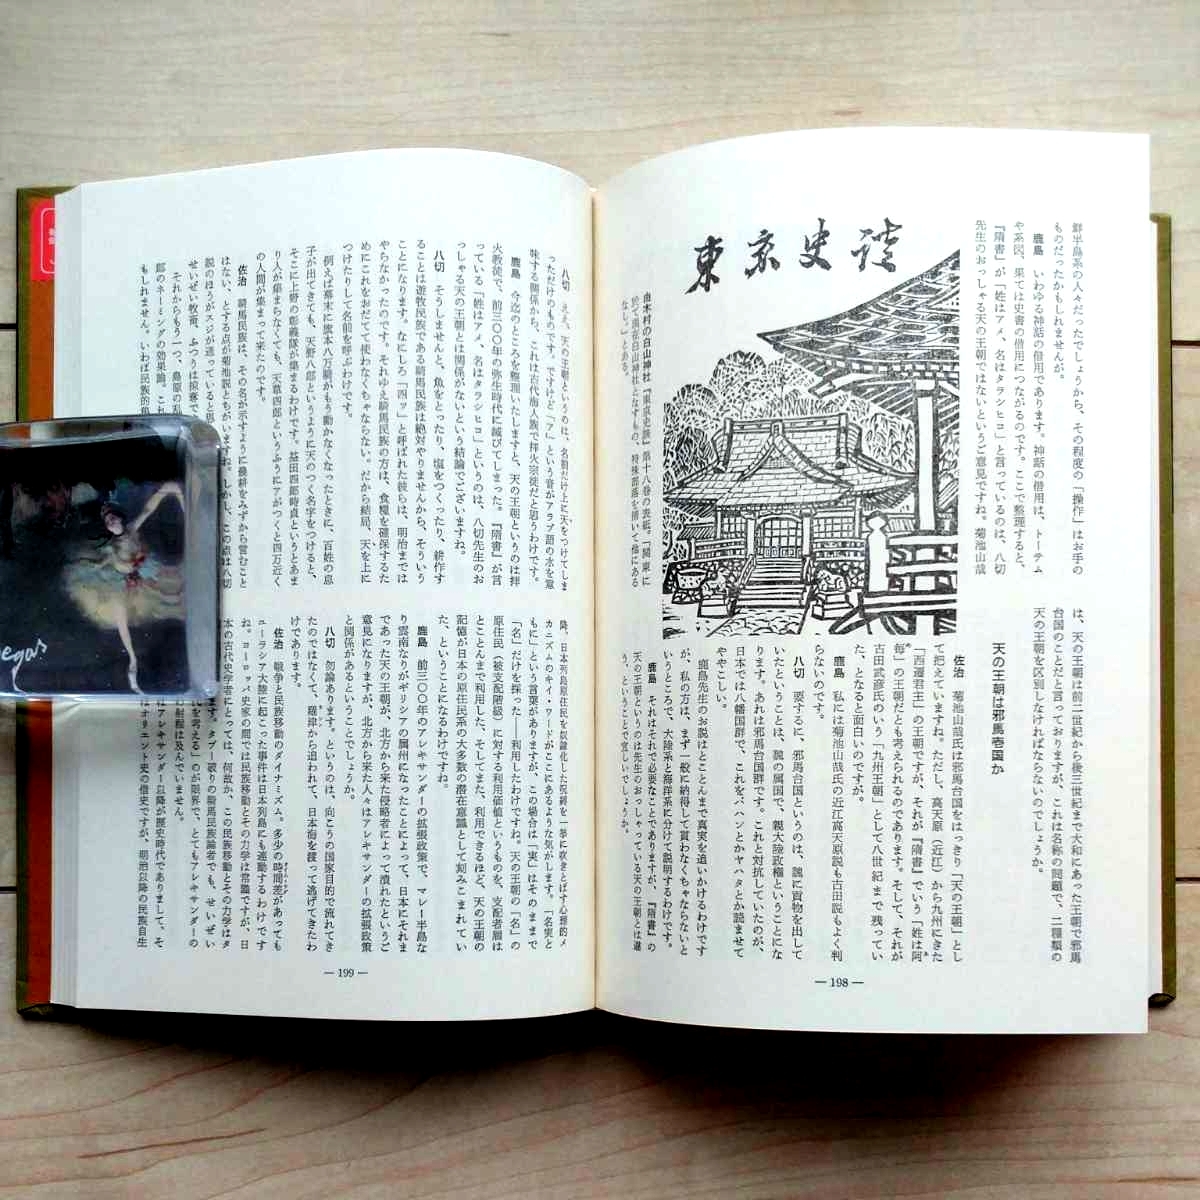 鮮半島系の人々だったでしょうから、その程度の「操作」はお手の
ものだったかもしれませんが。
鹿島 いわゆる神話の借用であります。神話の借用は、トーテム
や系図、果ては史書の借用につながるのです。ここで整理すると、
『隋書』が「姓はアメ、名はタラシヒコ」と言っているのは、八切
先生のおっしゃる天の王朝ではないというご意見ですね。菊池山哉
東京史談
由木村の白山神社『東京史談』第十八巻の表紙。「関東に
於て現在白山神社となすもの、特殊部落を措いて他にある
なし」とある。
は、天の王朝は前二世紀から後三世紀まで大和にあった王朝で邪馬
台国のことだと言っておりますが、これは名称の問題で、二種類の
天の王朝を区別しなければならないのでしょうか。
天の王朝は邪馬壱国か
佐治 菊池山哉氏は邪馬台国をはっきり「天の王朝」とし
て把えていますね。ただし、高天原(近江)から九州にきた
「西遷君主」の王朝ですが、それが『隋書』でいう「姓は阿
毎」の王朝だとも考えられるのであります。そして、それが
古田武彦氏のいう「九州王朝」として八世紀まで残ってい
た、となると面白いのですが。
鹿島 私には菊池山哉氏の近江高天原説も古田説もよく判
らないのです。
八切 要するに、邪馬台国というのは、魏に貢物を出して
いたということは、魏の属国で、親大陸政権ということにな
ります。あれは邪馬台国群です。これと対抗していたのが、
日本では八幡国群で、これをバハンとかヤハタとか読ませて
ややこしい。
鹿島先生のお説はとことんまで真実を追いかけるわけです
が、私の方は、まず一般に納得して貰わなくちゃならないと
いうところで、大陸系と海洋系に分けて説明するわけです。
鹿島 それはそれで必要なことでありますが、『隋書』の
天の王朝というのは先生のおっしゃっている天の王朝とは違
う、ということで宜しいでしょうか。
— 198 —
八切 ええ、天の王朝というのは、名前だけ上に天をつけてしま
っただけのものです。ですけど「ア」という音がアラブ語の水を意
味する関係から、これは古代海人族で拝火宗徒だと思うわけです。
鹿島 今迄のところを整理いたしますと、天の王朝というのは拝
火教徒で、前三〇〇年の弥生時代に滅びてしまった。『隋書』が言
っている「姓はアメ、名はタラシヒコ」というのは、八切先生のお
っしゃる天の王朝とは関係がないという結論でございますね。
八切 そうしませんと、魚をとったり、塩をつくったり、耕作す
ることは遊牧民族である騎馬民族は絶対やりませんから、そういう
ことになります。なにしろ「四ッ」と呼ばれた彼らは、明治までは
やらなかったのです。それゆえ騎馬民族の方は、食糧を確保するた
めにこれをおだてて使わなくちゃならない。だから結局、天を上に
つけたりして名前を呼ぶわけです。
例えば幕末に旗本八万騎がもう動かなくなったときに、百姓の息
子が出てきても、天野八郎というように天のつく名字をつけると、
そこに上野の彰義隊が集まるわけです。益田四郎時貞というとあま
り人が集まらなくても、天草四郎というふうにアがつくと四万近く
の人間が集まって来たのです。
佐治 騎馬民族は、その名が示すように農耕をみずから営むこと
はない、とする点が菊池説とちがいますね。しかし、この点は八切
説のほうがスジが通っていると思
せいぜい牧畜、ふつうは掠奪で
それからもう一つ、島原の乱
郎のネーミングの効果論。これ
もしれません。いわば民族的
降、日本列島原住民を奴隷化した呪縛を一挙に吹きとばす心理的メ
カニズムのキイ・ワードがここにあるような気がします。「名実と
もに」という言葉がありますが、この場合は「実」はそのままで
「名」だけを採った――利用したわけですね。天の王朝の「名」の
原住民(被支配階級)に対する利用価値というものを、支配者層は
とことんまで利用した、そしてまた、利用できるほど、天の王朝の
記憶が日本の原住民系の大多数の潜在意識として刻みこまれてい
た、ということになるわけですね。
鹿島 前三〇〇年のアレキサンダーの拡張政策で、マレー半島な
り雲南なりがギリシアの属州になったことによって、日本にそれま
であった天の王朝が、北方から来た侵略者によって潰れたというご
意見になりますが、北方から来た人々はアレキサンダーの拡張政策
と関係があるということでしょうか。
八切 勿論あります。というのは、向こうの国家目的で流れてき
たのではなくて、羅津から追われて、日本海を渡って逃げてきたわ
けであります。
佐治 戦争と民族移動のダイナミズム。多少の時間差があっても
ユーラシア大陸に起こった事件は日本列島にも連動するわけです
ね。ヨーロッパ史家の間では民族移動とその力学は常識ですが、日
本の古代史学者にとっては、何故か、この民族移動とその力学はタ
ます。タブー破りの騎馬民族論者でも、せいぜい
を考える」のが限界で、とてもアレキサンダーの
射程は及んでいません。
アレキサンダー以降が歴史時代でありまして、そ
はオリエント史の借史ですが、明治以降の民族自生
— 199 —
egas